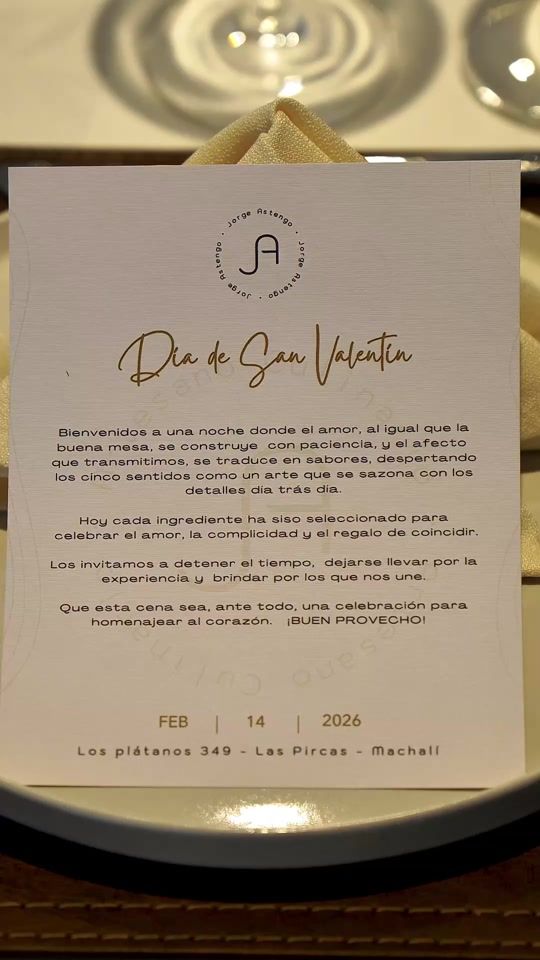 Jorge Astengo · Jorge Astengo · Jorge Astengo ·
JA
Día de San Valentín
Bienvenidos a una noche donde el amor, al igual que la
buena mesa, se construye con paciencia, y el afecto
que transmitimos, se traduce en sabores, despertando
los cinco sentidos como un arte que se sazona con los
detalles día trás día.
Hoy cada ingrediente ha siso seleccionado para
celebrar el amor, la complicidad y el regalo de coincidir.
Los invitamos a detener el tiempo, dejarse llevar por la
experiencia y brindar por los que nos une.
Que esta cena sea, ante todo, una celebración para
homenajear al corazón. ¡BUEN PROVECHO!
Artesano Culinario
FEB | 14 | 2026
Los plátanos 349 - Las Pircas - Machalí